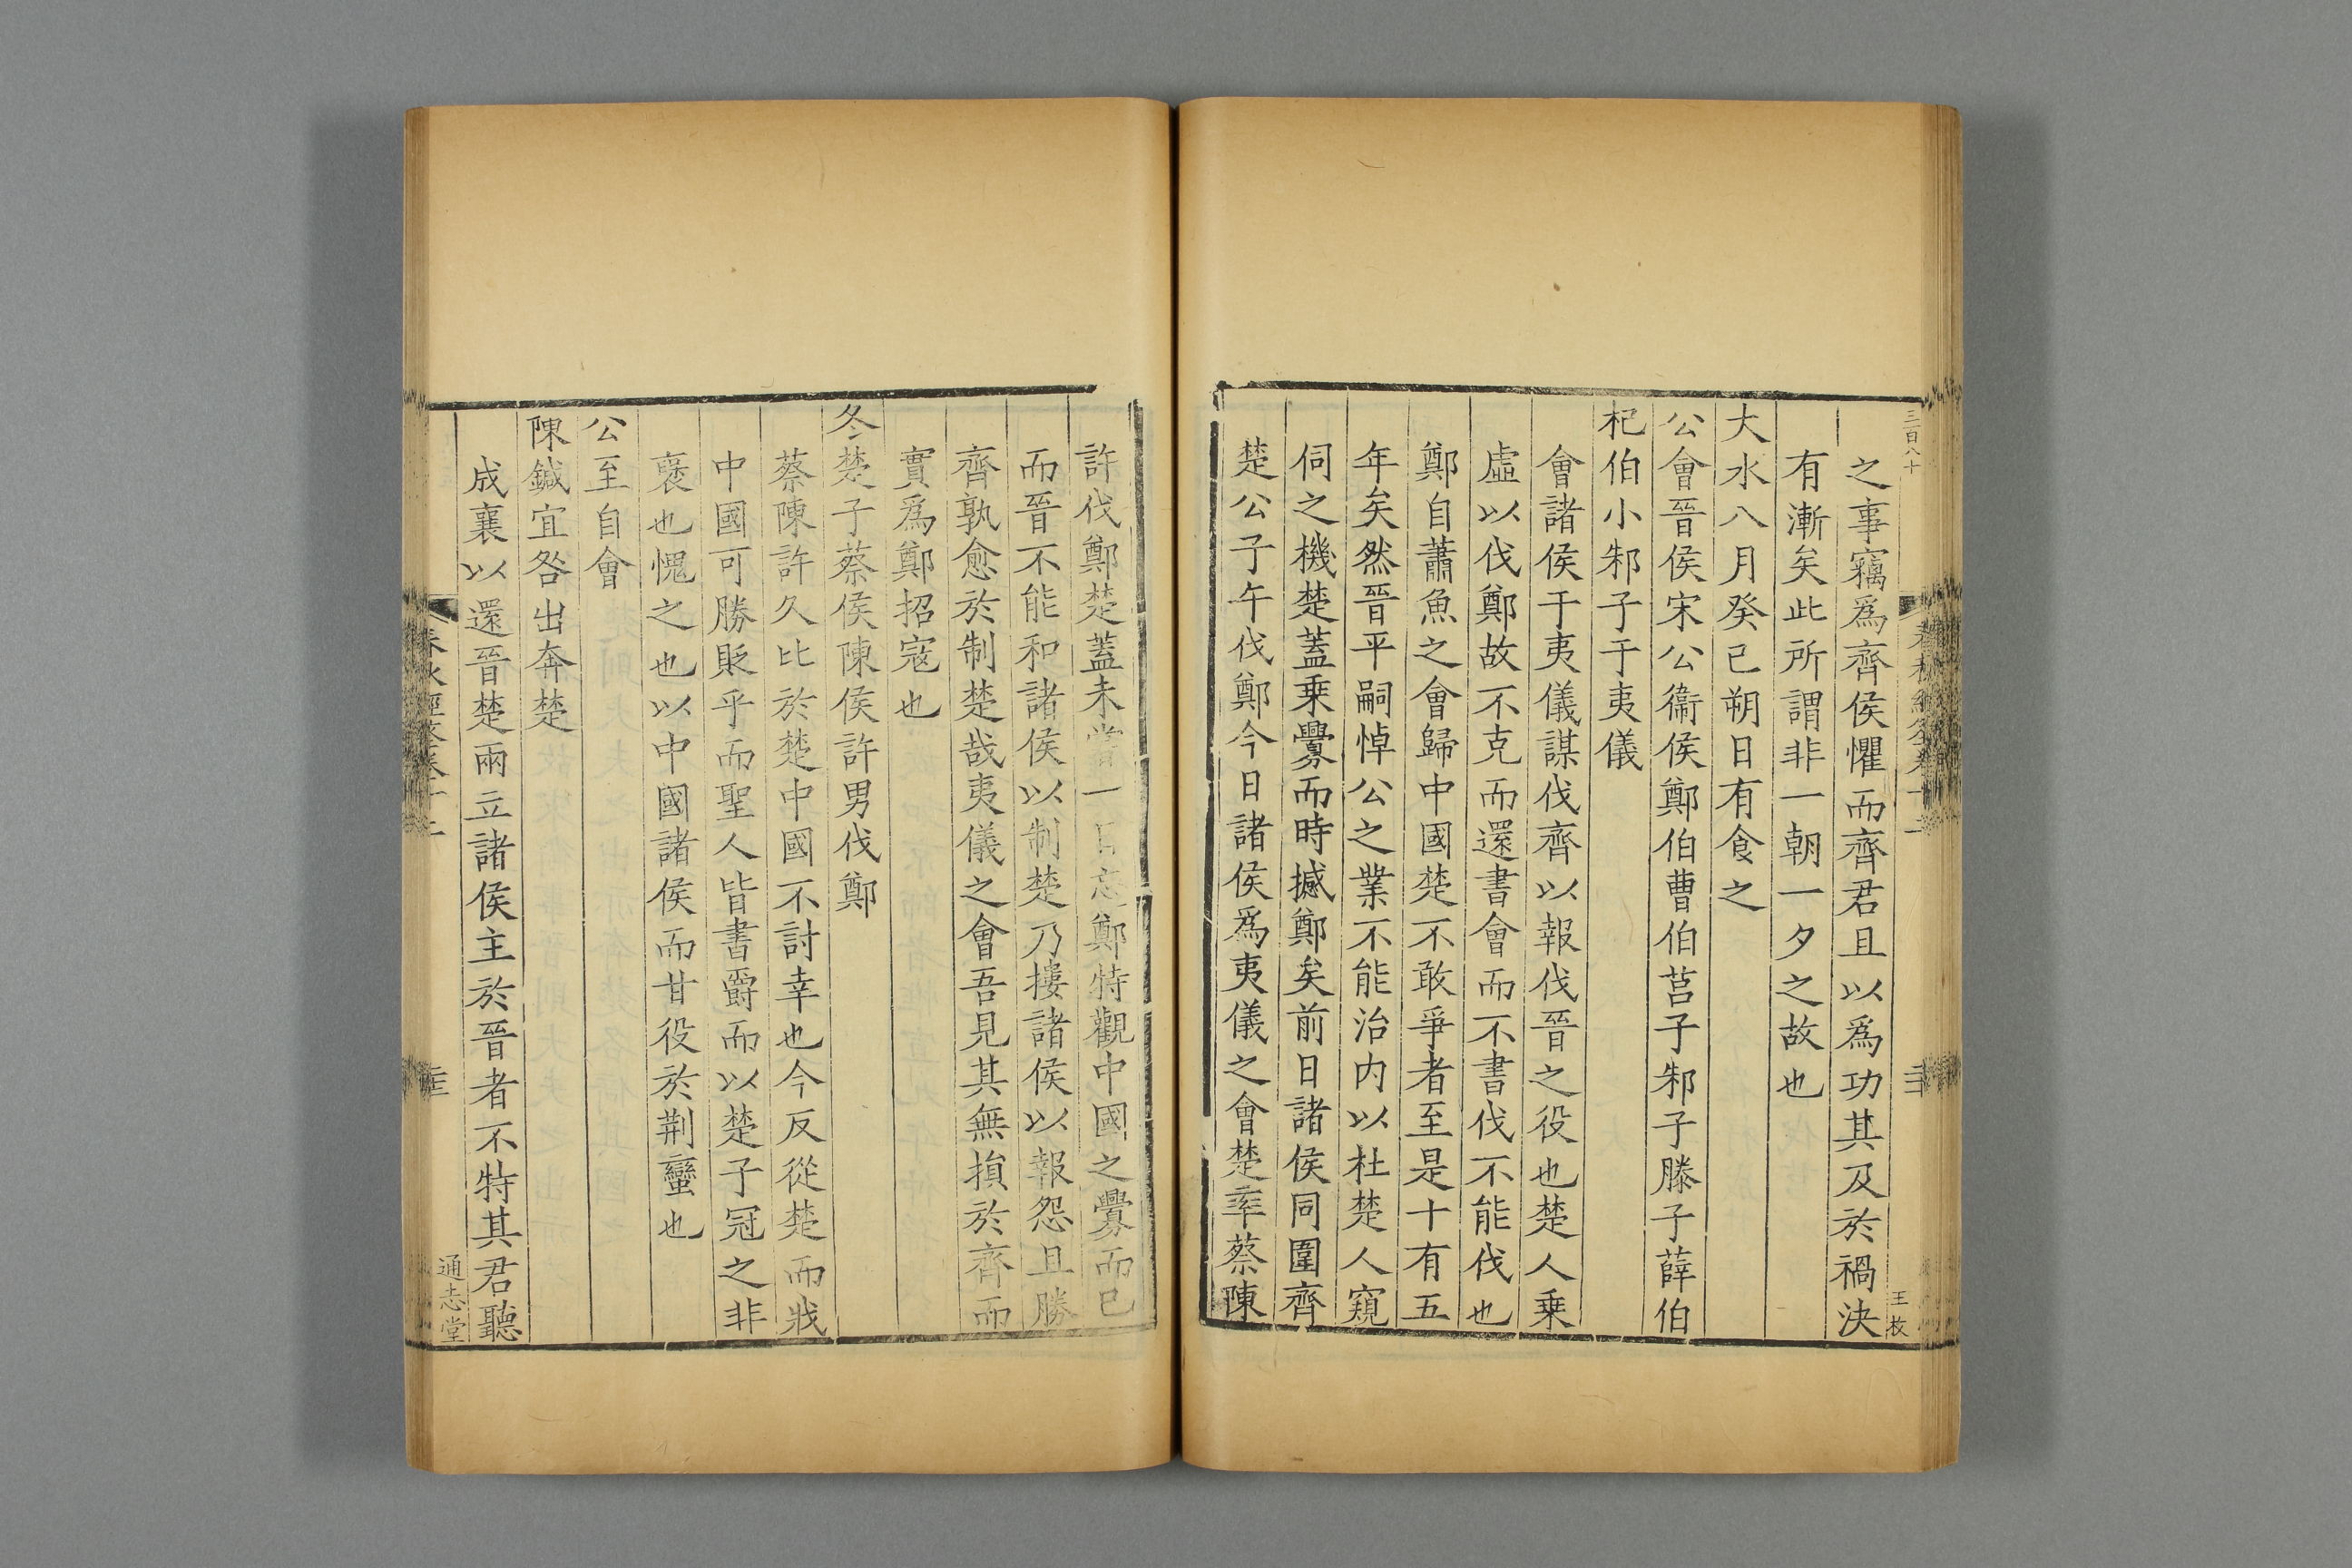 三百八十
之事竊爲齊侯懼而齊君且以爲功其及於禍決
有漸矣此所謂非一朝一夕之故也
大水八月癸巳朔日有食之
公會晉侯宋公衞侯鄭伯曹伯莒子邾子滕子薛伯
杞伯小邾子于夷儀
會諸侯于夷儀謀伐齊以報伐晉之役也楚人乗
虛以伐鄭故不克而還書會而不書伐不能伐也
鄭自蕭魚之會歸中國楚不敢爭者至是十有五
年矣然晉平嗣悼公之業不能治内以杜楚人窺
伺之機楚蓋乗釁而時撼鄭矣前日諸侯同圍齊
楚公子午伐鄭今日諸侯爲夷儀之會楚率蔡陳
王枚
許伐鄭楚蓋未嘗一日忘鄭特觀中國之釁而已
而晉不能和諸侯以制楚乃摟諸侯以報怨且勝
齊孰愈於制楚哉夷儀之會吾見其無損於齊而
實爲鄭招寇也
冬楚子蔡侯陳侯許男伐鄭
蔡陳許久比於楚中國不討幸也今反從楚而戕
中國可勝貶乎而聖人皆書爵而以楚子冠之非
襃也愧之也以中國諸侯而甘役於荆蠻也
公至自會
陳鍼宜咎出奔楚
成襄以還晉楚兩立諸侯主於晉者不特其君聽
通志堂